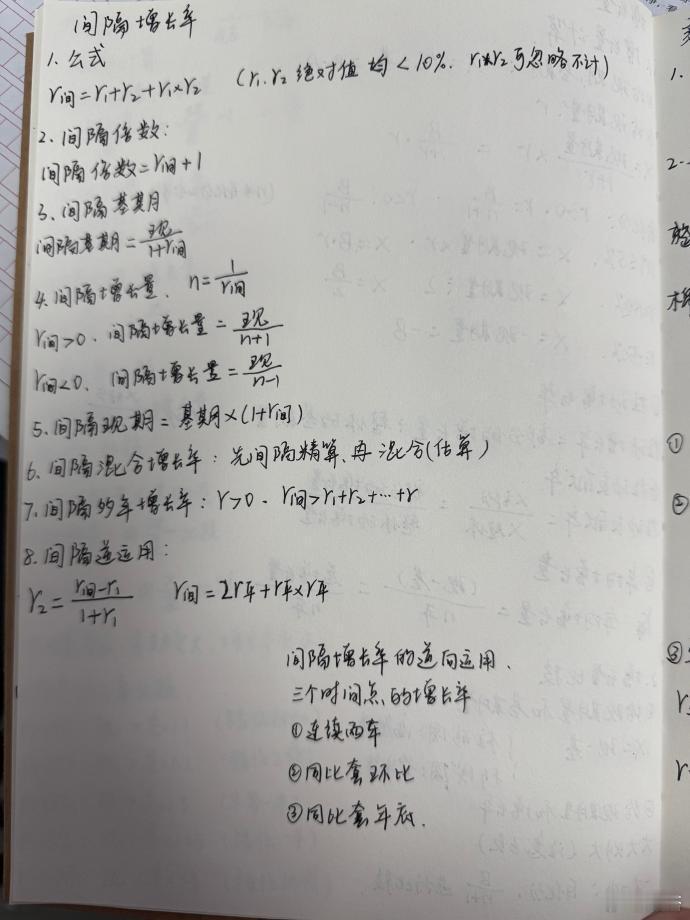 间隔增长率
1. 公式
r间=r₁+r₂+r₁×r₂ (r₁.r₂绝对值均<10%. r₁×r₂可忽略不计)
2. 间隔倍数:
间隔倍数=r间+1
3. 间隔基期
间隔基期=现/(1+r间)
4. 间隔增长量. n=1/r间
r间>0. 间隔增长量=现/(n+1)
r间<0. 间隔增长量=现/(n-1)
5. 间隔现期=基期×(1+r间)
6. 间隔混合增长率: 先间隔精算、再混合(估算)
7. 间隔的年增长率: r>0. r间>r₁+r₂+…+r
8. 间隔逆运用:
r₂=(r间-r₁)/(1+r₁) r间=2r平+r平×r平
间隔增长率的逆向运用.
三个时间点的增长率
①连续两年
②同比套环比
③同比套年底.
1.
2.
①
②
③